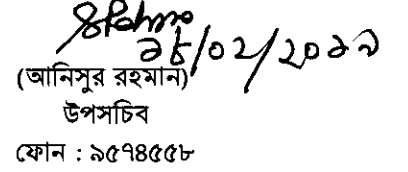 ১৮/০২/২০১৯
(আনিসুর রহমান)
উপসচিব
ফোন : ৯৫৭৪৫৫৮